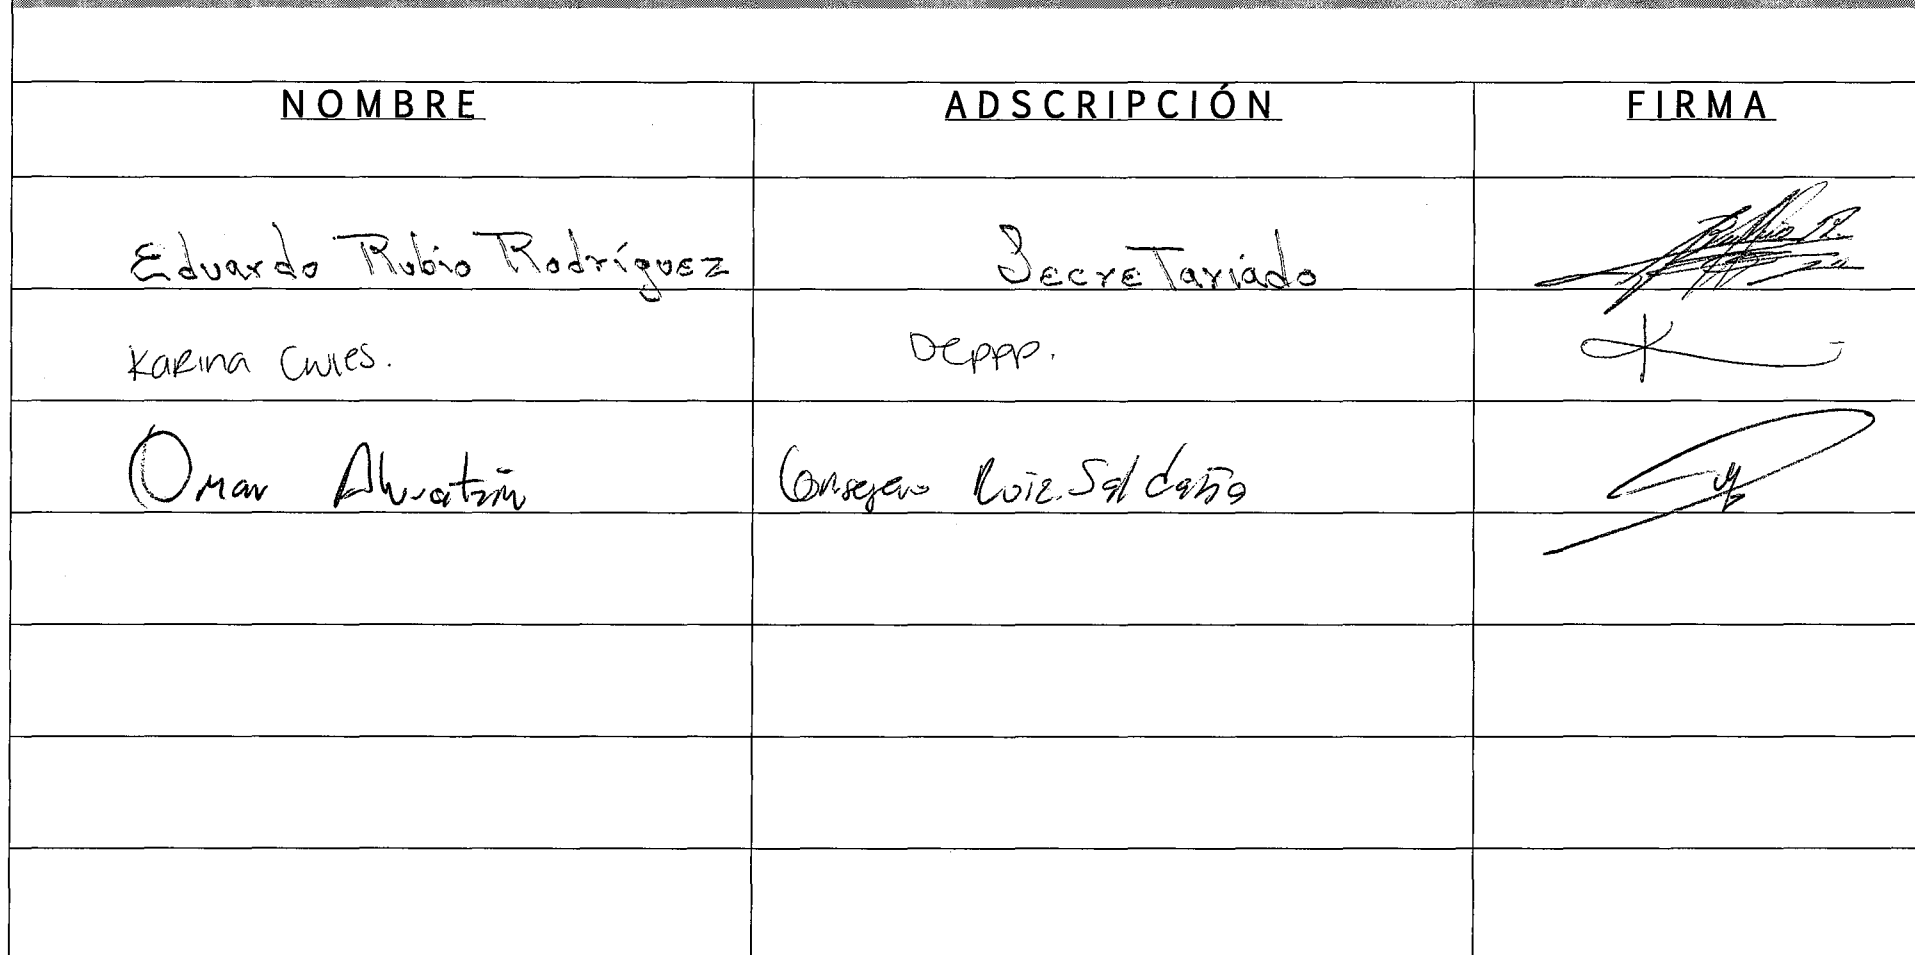 NOMBRE ADSCRIPCIÓN FIRMA
Eduardo Rubio Rodríguez Secretariado
Karina DEPPP.
Omar Consejero Ruiz Saldaña